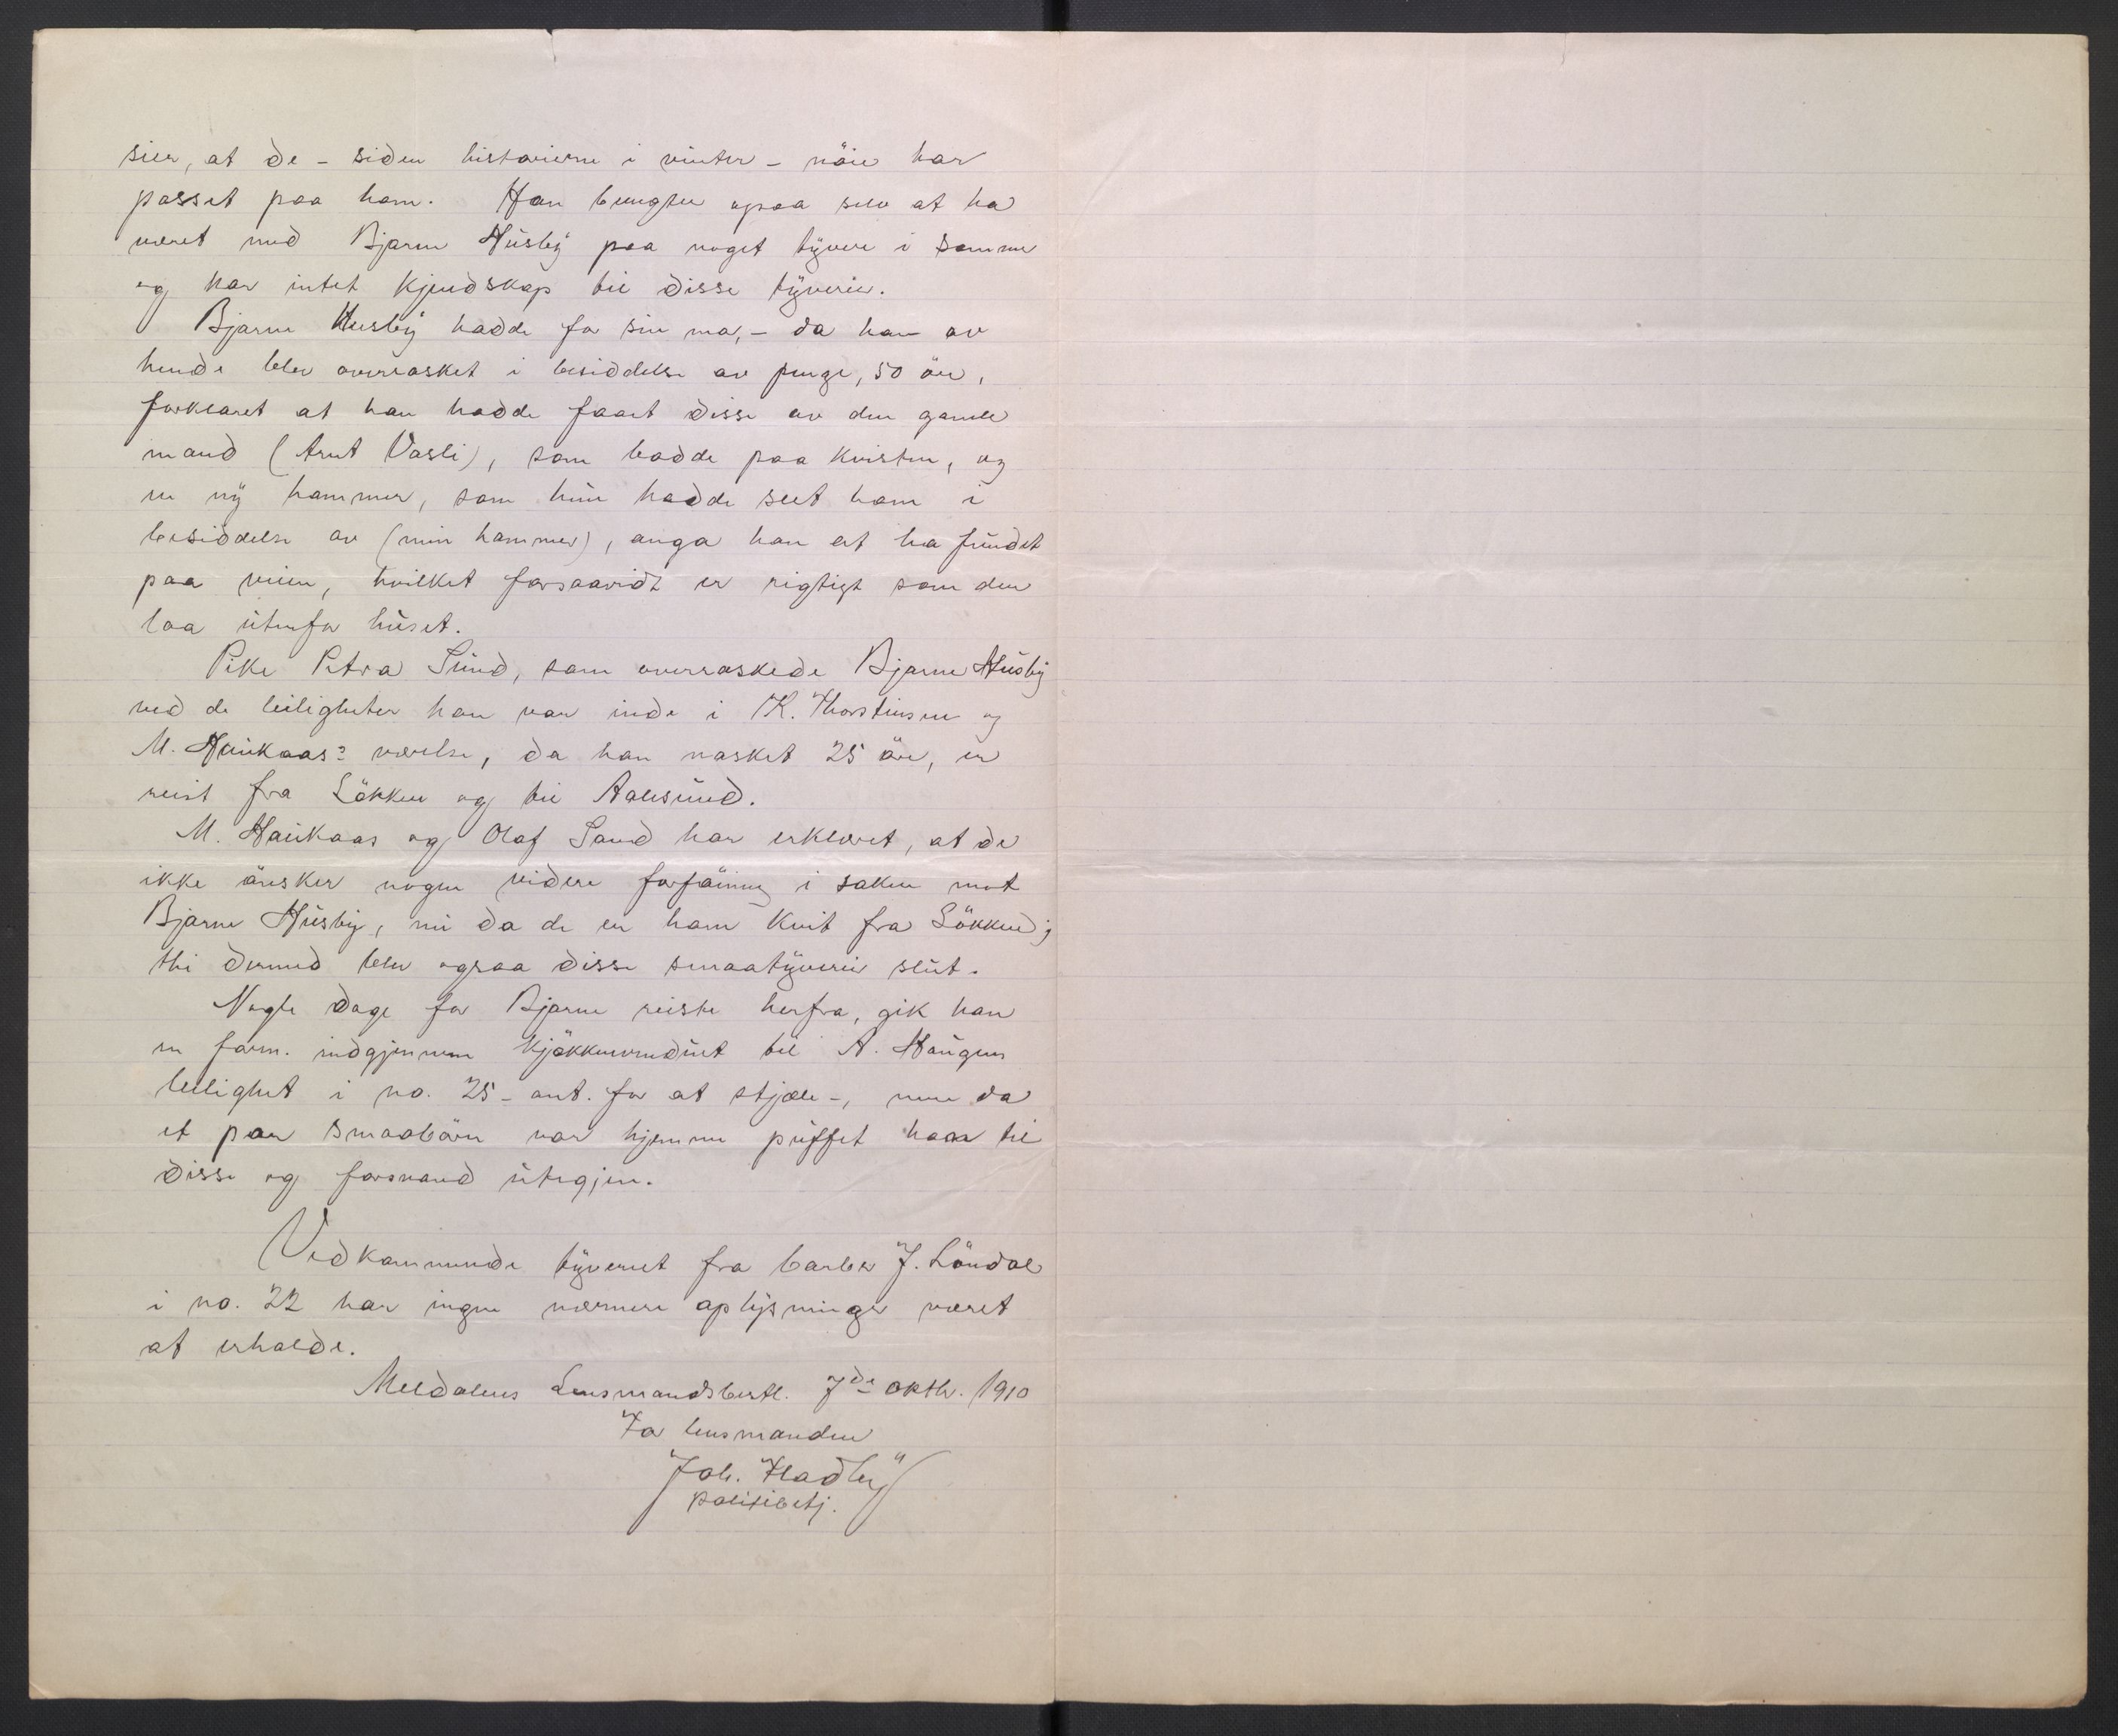 sier, at de – siden historierne i vinter – nöie har
passet paa ham. Han benegter ogsaa selv at ha
været med Bjarne Husby paa noget tyveri i sommer
og har intet kjendskap til disse tyverier.
Bjarne Husby hadde for sin mor, – da han av
hende blev overrasket i besiddelse av penge, 50 öre,
forklaret at han hadde faaet disse av den gamle
mand (Arnt Vasli), som bodde paa kvisten, og
en ny hammer, som hun hadde seet ham i
besiddelse av (min hammer), anga han at ha fundet
paa veien, hvilket forsaavidt er rigtigt som den
laa utenfor huset.
Pike Petra Sund, som overraskede Bjarne Husby
ved de leiligheter han var inde i K. Thorstensen og
M. Haukaas's værelse, da han nasket 25 öre, er
reist fra Lökken og til Aalesund.
M. Haukaas og Olaf Sand har erklæret, at de
ikke önsker nogen videre forföining i saken mot
Bjarne Husby, nu da de er ham kvit fra Lökken;
thi dermed blev ogsaa disse smaatyverier slut.
Nogle dage før Bjarne reiste herfra, gik han
en form. indgjennem kjökkenvinduet til A. Haugens
leilighet i no. 25 – ant. for at stjæle –, men da
et par smaabörn var hjemme puffet han til
disse og forsvand utigjen.
Vedkommende tyveriet fra barber J. Löndal
i no. 22 har ingen nærmere oplysninger været
at erholde.
Meldalens Lensmandsbestl. 7de oktbr. 1910
For lensmanden
Joh. Fladby
politibetj.